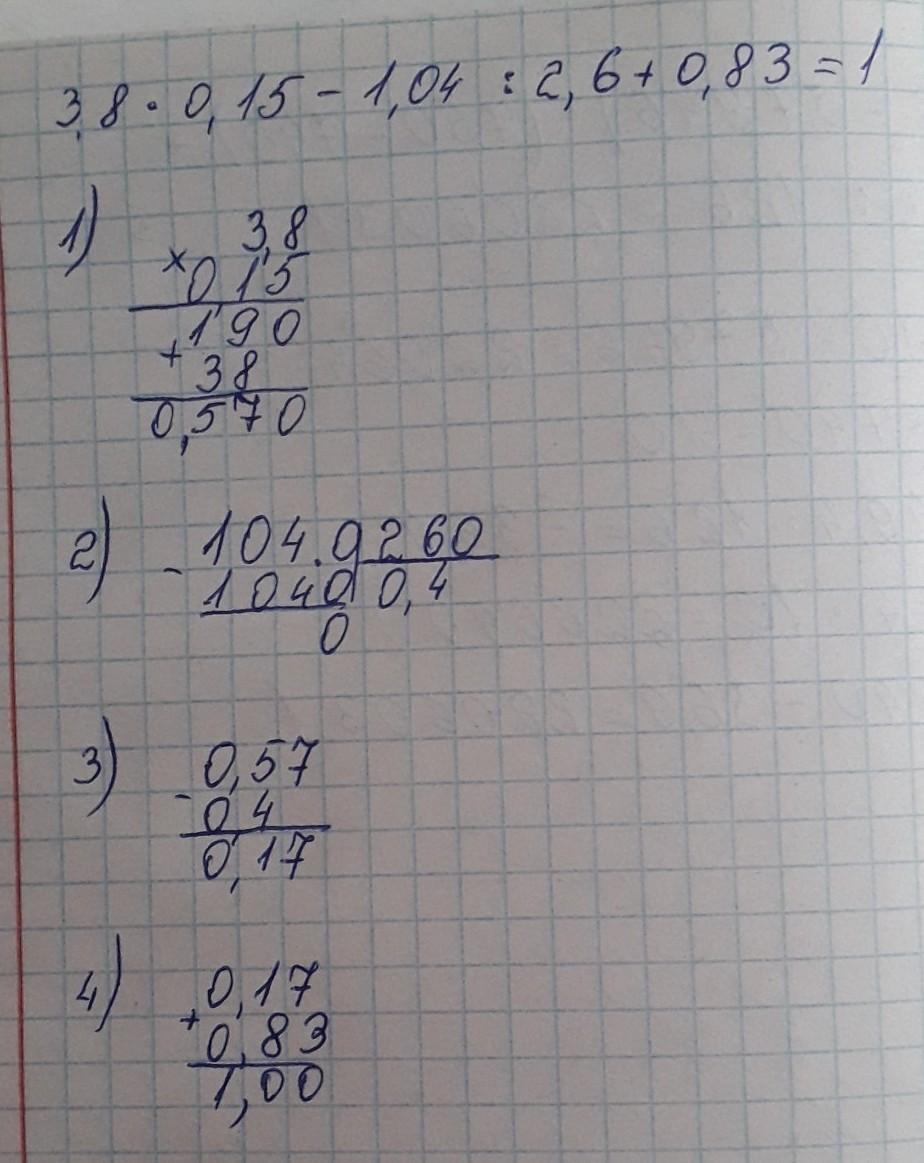 3,8 · 0,15 - 1,04 : 2,6 + 0,83 = 1
1)
3,8
× 0,15
190
+ 38
0,570
2)
- 104.0 260
1040 0,4
0
3)
0,57
- 0,4
0,17
4)
0,17
+ 0,83
1,00